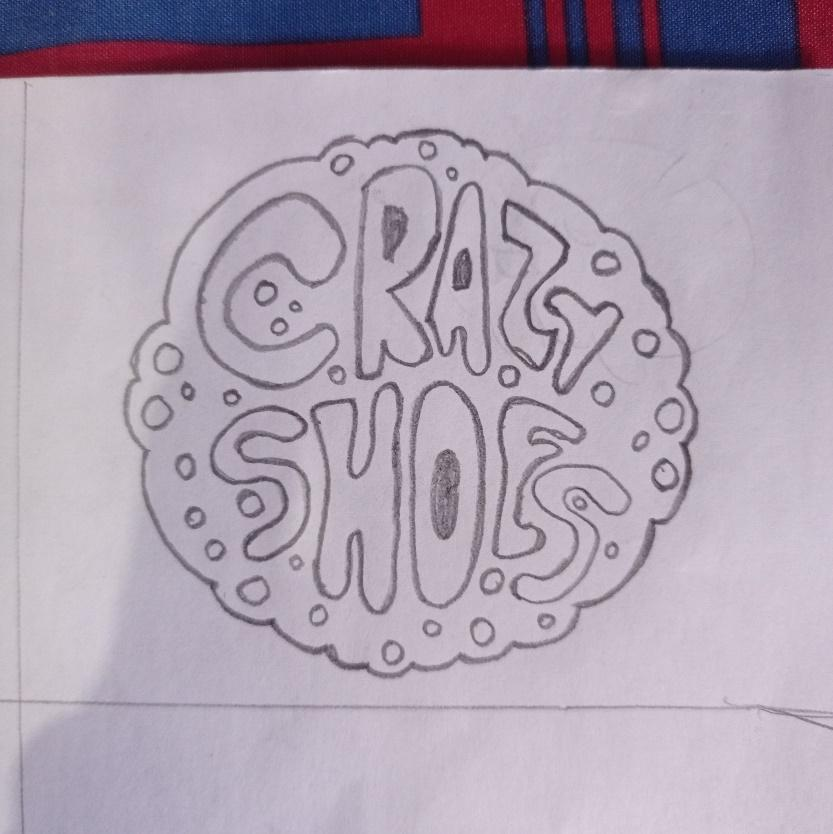 CRAZY
SHOES